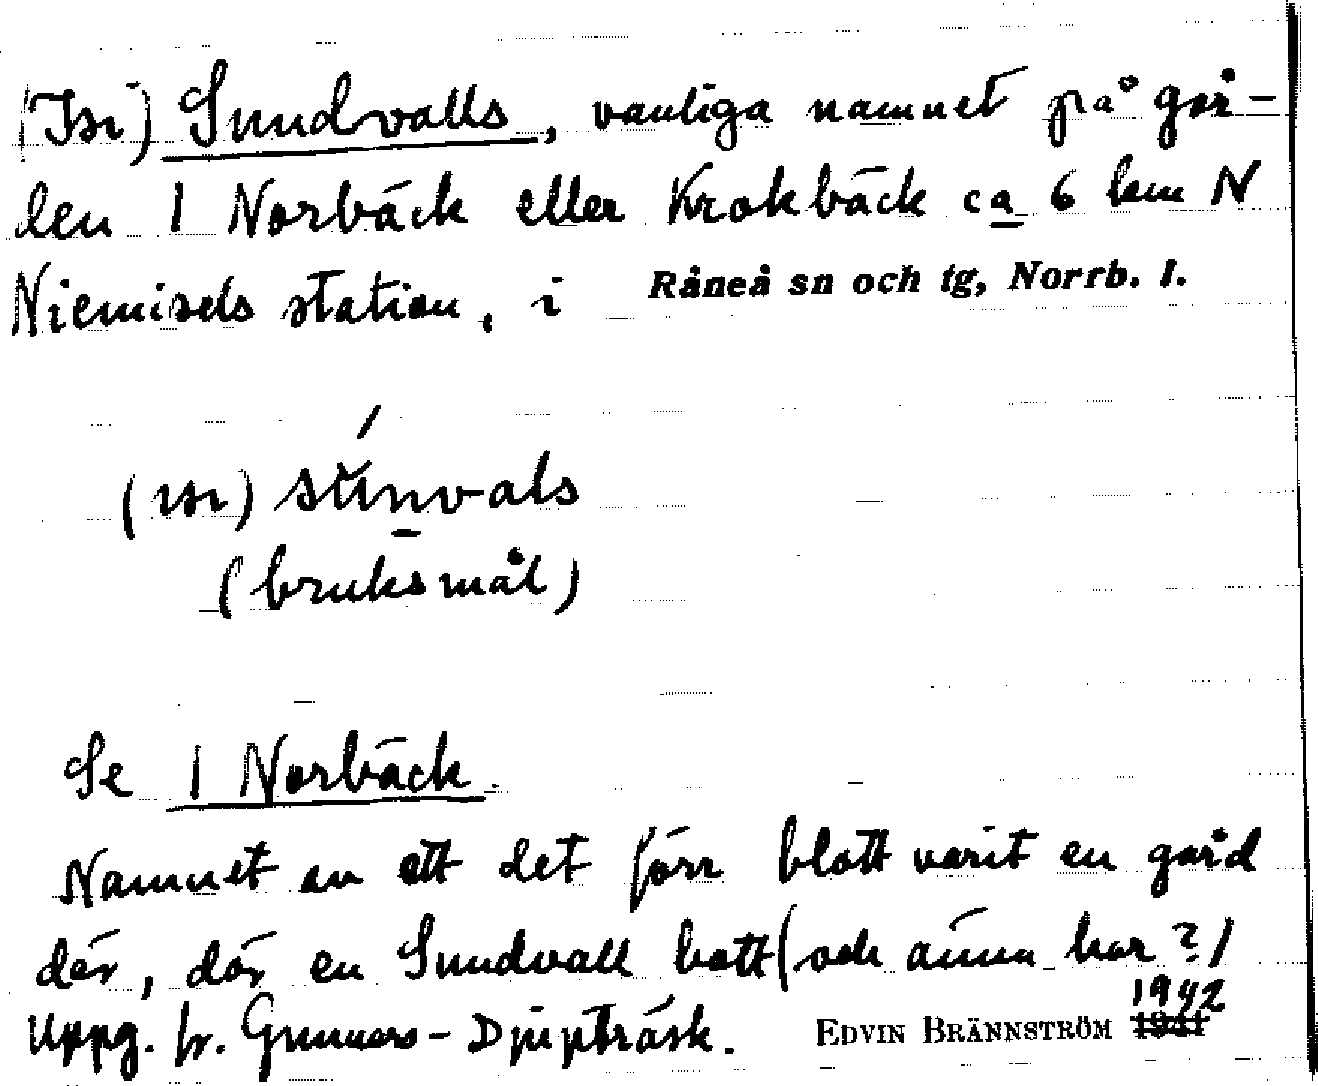 (In) Sundvalls, vanliga namnet på går-
den 1 Norbäck eller Krokbäck ca 6 km N
Niemisels station, i Råneå sn och tg, Norrb. l.
(ın) sŭnvals
(bruksmål)
Se 1 Norbäck.
Namnet av att det förr blott varit en gård
där, där en Sundvall bott (och ännu bor?)
Uppg. fr. Gunnars-Djupträsk. EDVIN BRÄNNSTRÖM 1941 1942